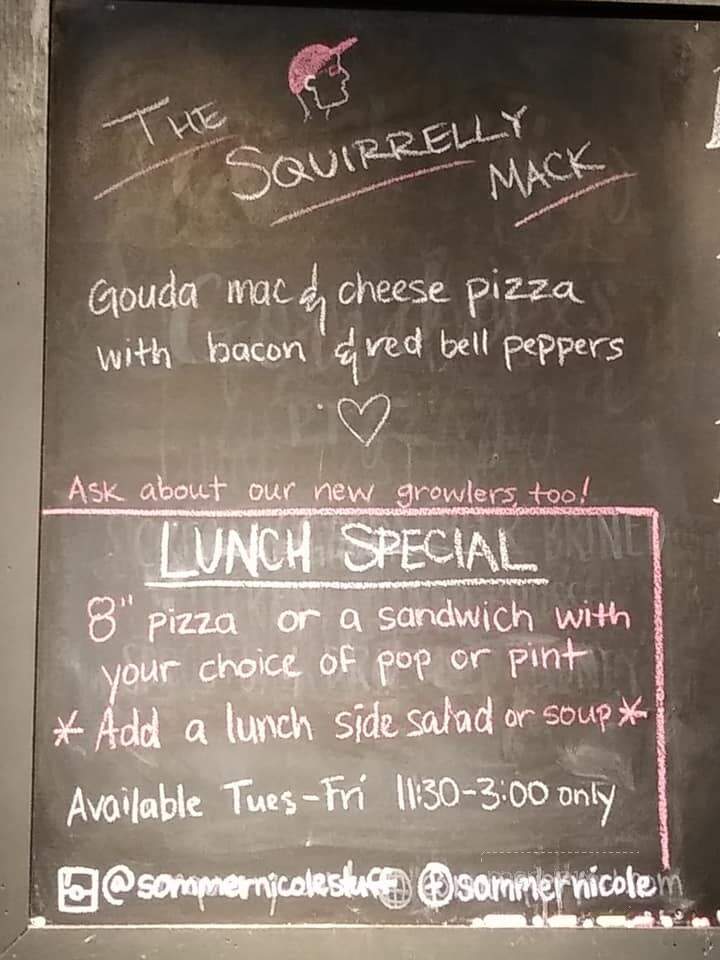 THE
SQUIRRELLY
MACK
Gouda mac & cheese pizza
with bacon & red bell peppers
Ask about our new growlers, too!
LUNCH SPECIAL
8" pizza or a sandwich with
your choice of pop or pint
* Add a lunch side salad or soup *
Available Tues-Fri 11:30-3:00 only
@sommernicolestuff sommernicole